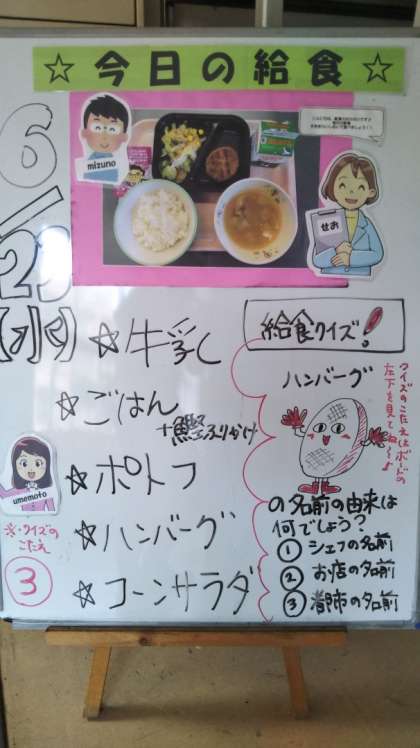 ☆今日の給食☆
mizuno
せお
6/
(水)
☆牛乳
☆ごはん
+鰹ふりかけ
☆ポトフ
☆ハンバーグ
☆コーンサラダ
umemoto
※クイズの
こたえ
③
給食クイズ!
ハンバーグ
クイズのこたえはボードの
左下を見てね〜♪
の名前の由来は
何でしょう?
① シェフの名前
② お店の名前
③ 都市の名前